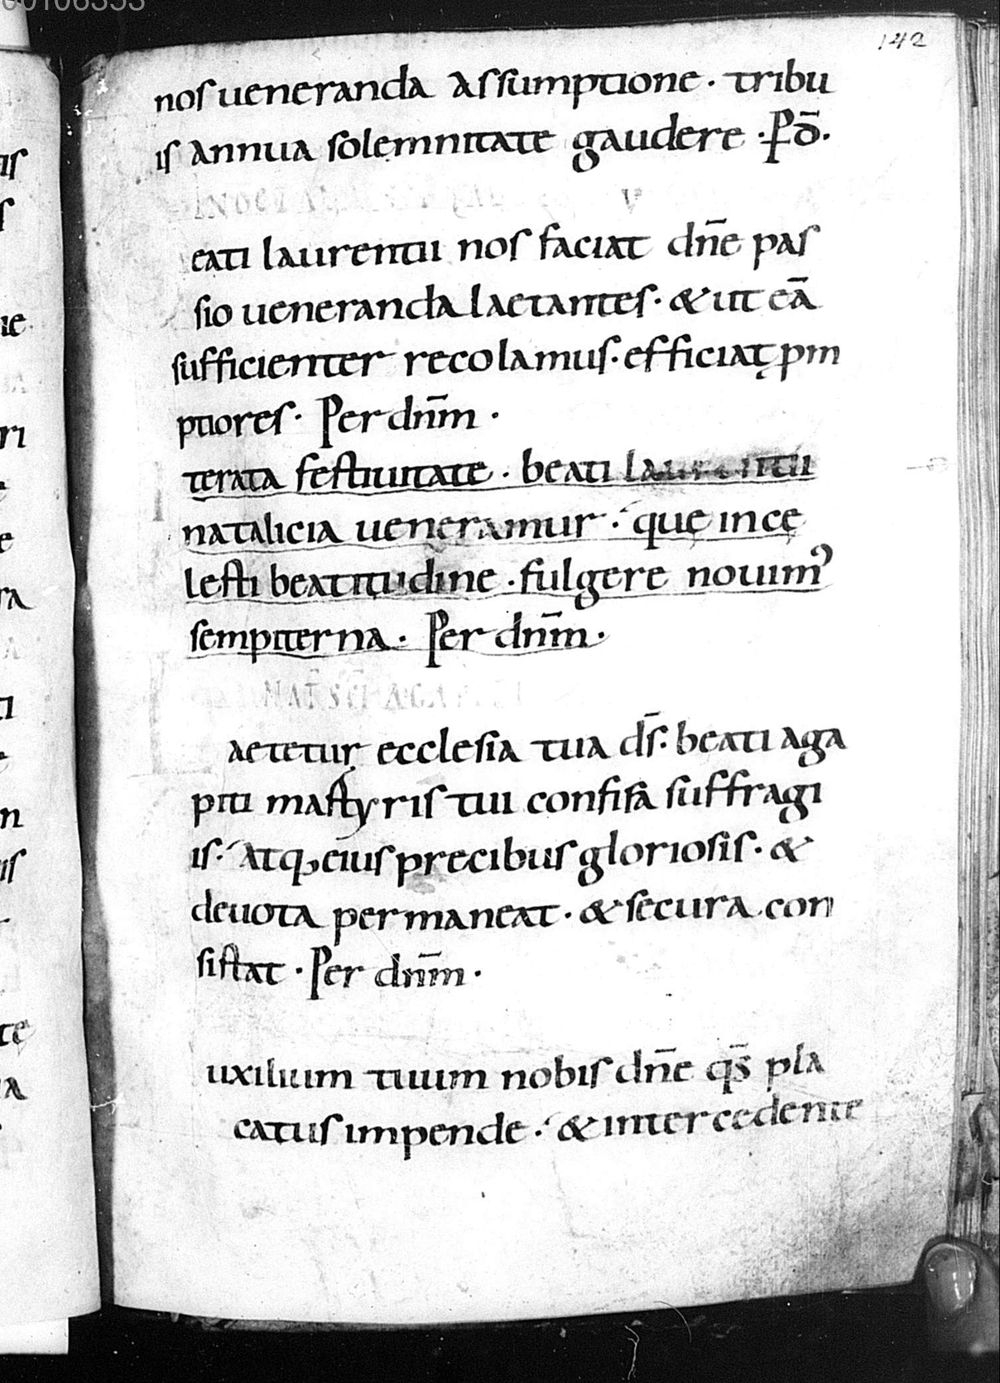 00106353
142
nos ueneranda assumptione · tribu
is annua solemnitate gaudere · P d̄.
V
eati laurentii nos faciat dn̄e pas
sio ueneranda laetantes · & ut eā
sufficienter recolamus · efficiat pm
ptiores · Per dn̄m ·
terata festiuitate · beati laurentii
natalicia ueneramur · quę in cę
lesti beatitudine · fulgere nouim⁹
sempiterna · Per dn̄m ·
NAT SCI AGAPITI
aetetur ecclesia tua d̄s · beati aga
piti martyris tui confisa suffragi
is · Atq; eius precibus gloriosis · &
deuota permaneat · & secura con
sistat · Per dn̄m ·
uxilium tuum nobis dn̄e qs̄ pla
catus impende · & intercedente